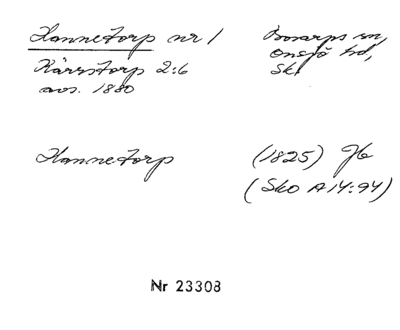 Hannetorp nr 1
Bosarps sn,
Onsjö hd,
Sk.
Kärrstorp 2:6
avs. 1880
Hannetorp
(1825) Jb
(Sko A14:94)
Nr 23308